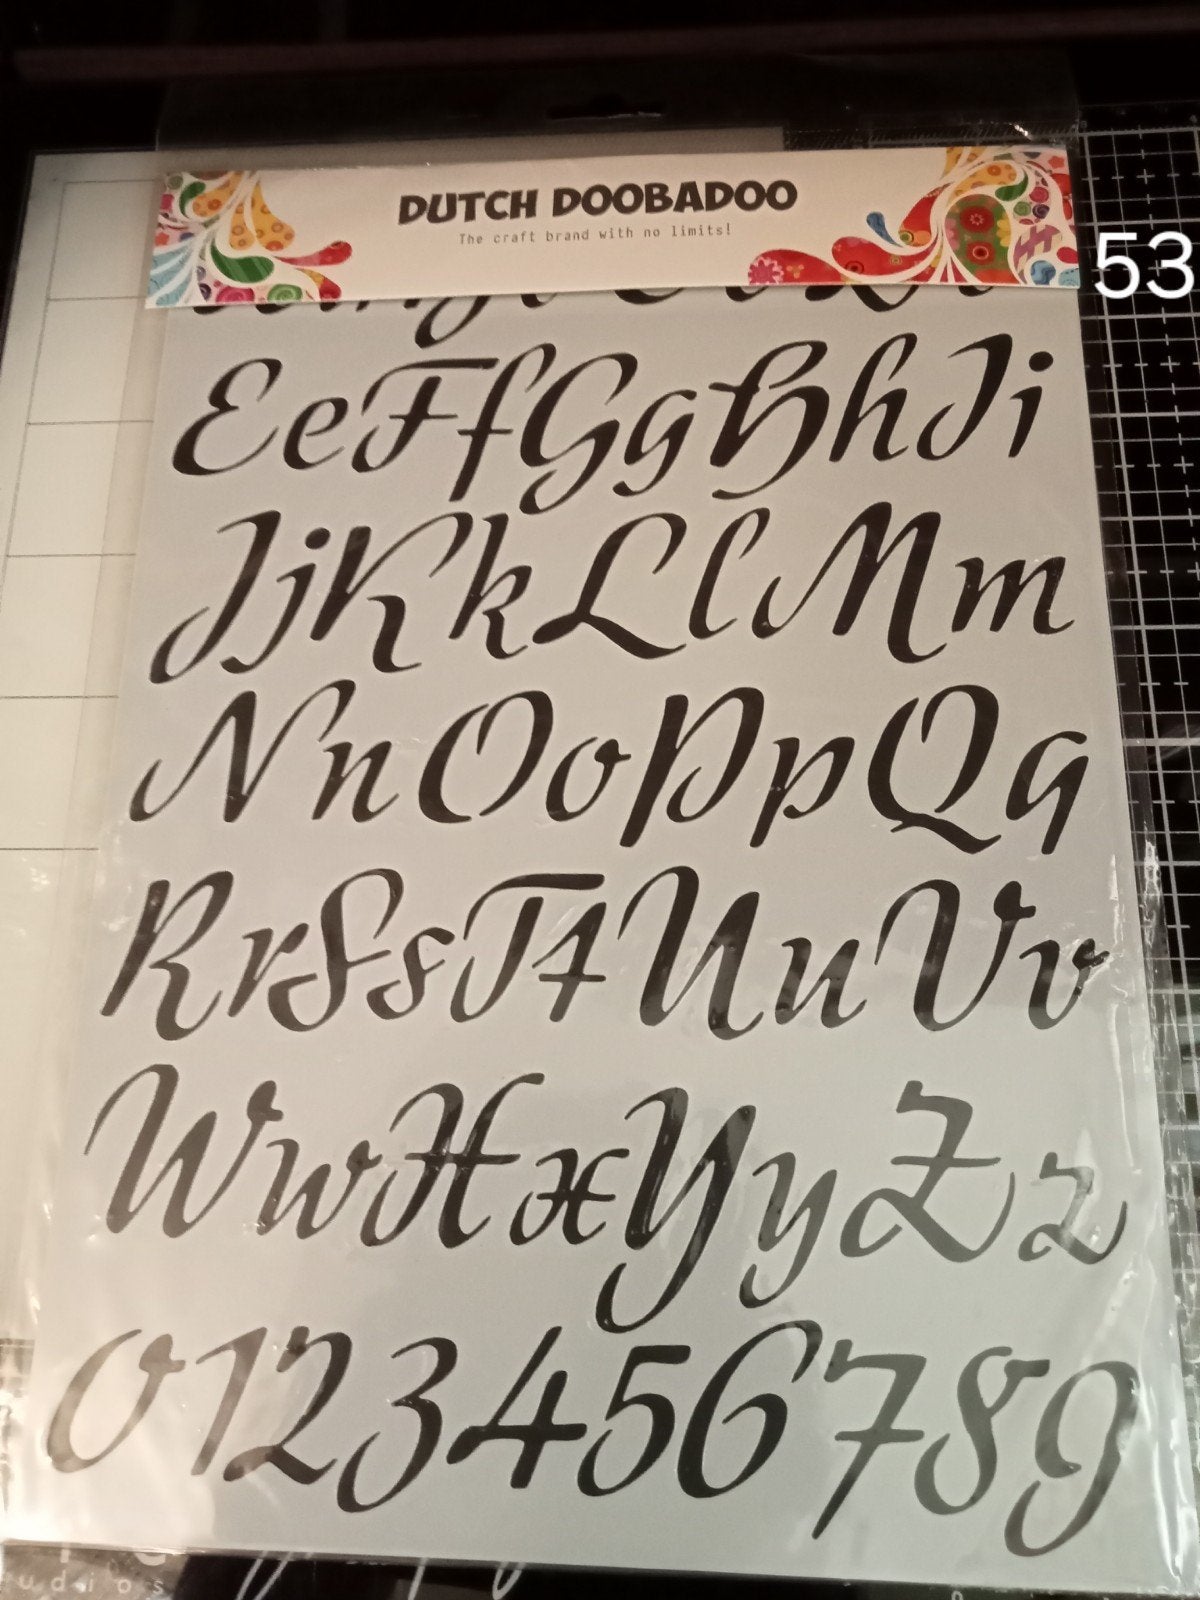 DUTCH DOOBADOO
The craft brand with no limits!
53
EeFfGgHhIi
JjKkLlMm
NnOoPpQq
RrSsTtUuVv
WwXxYyZz
0123456789
udios